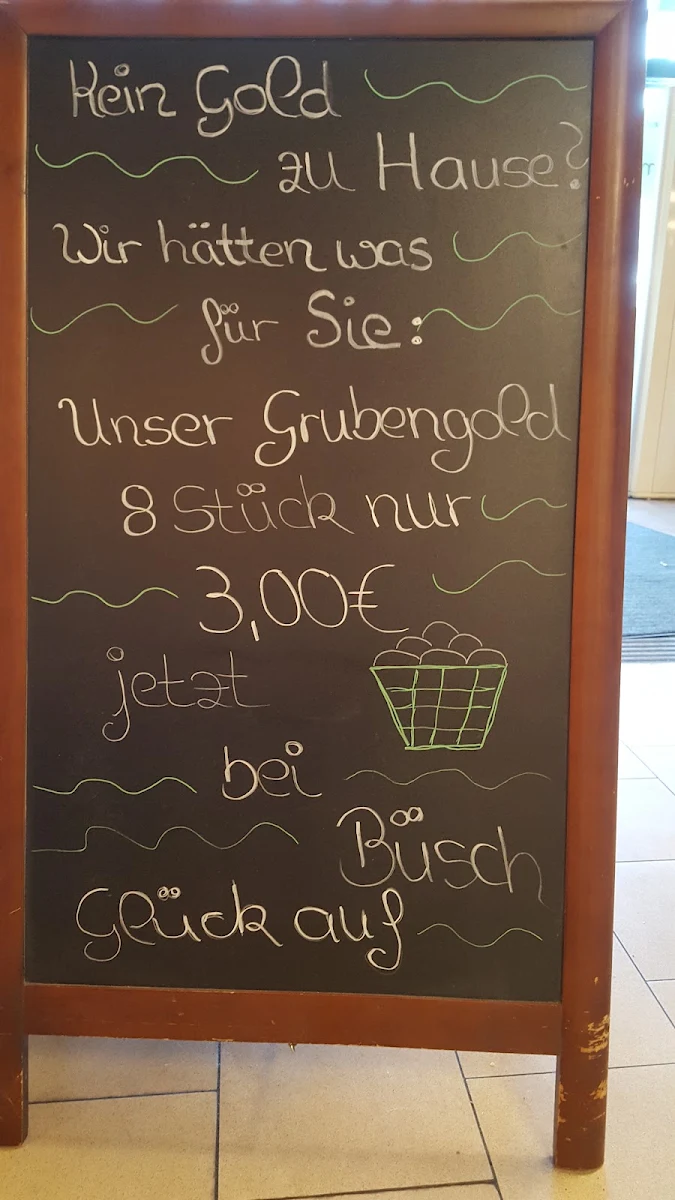 Kein Gold
zu Hause?
Wir hätten was
für Sie:
Unser Grubengold
8 Stück nur
3,00€
jetzt
bei
Büsch
Glück auf